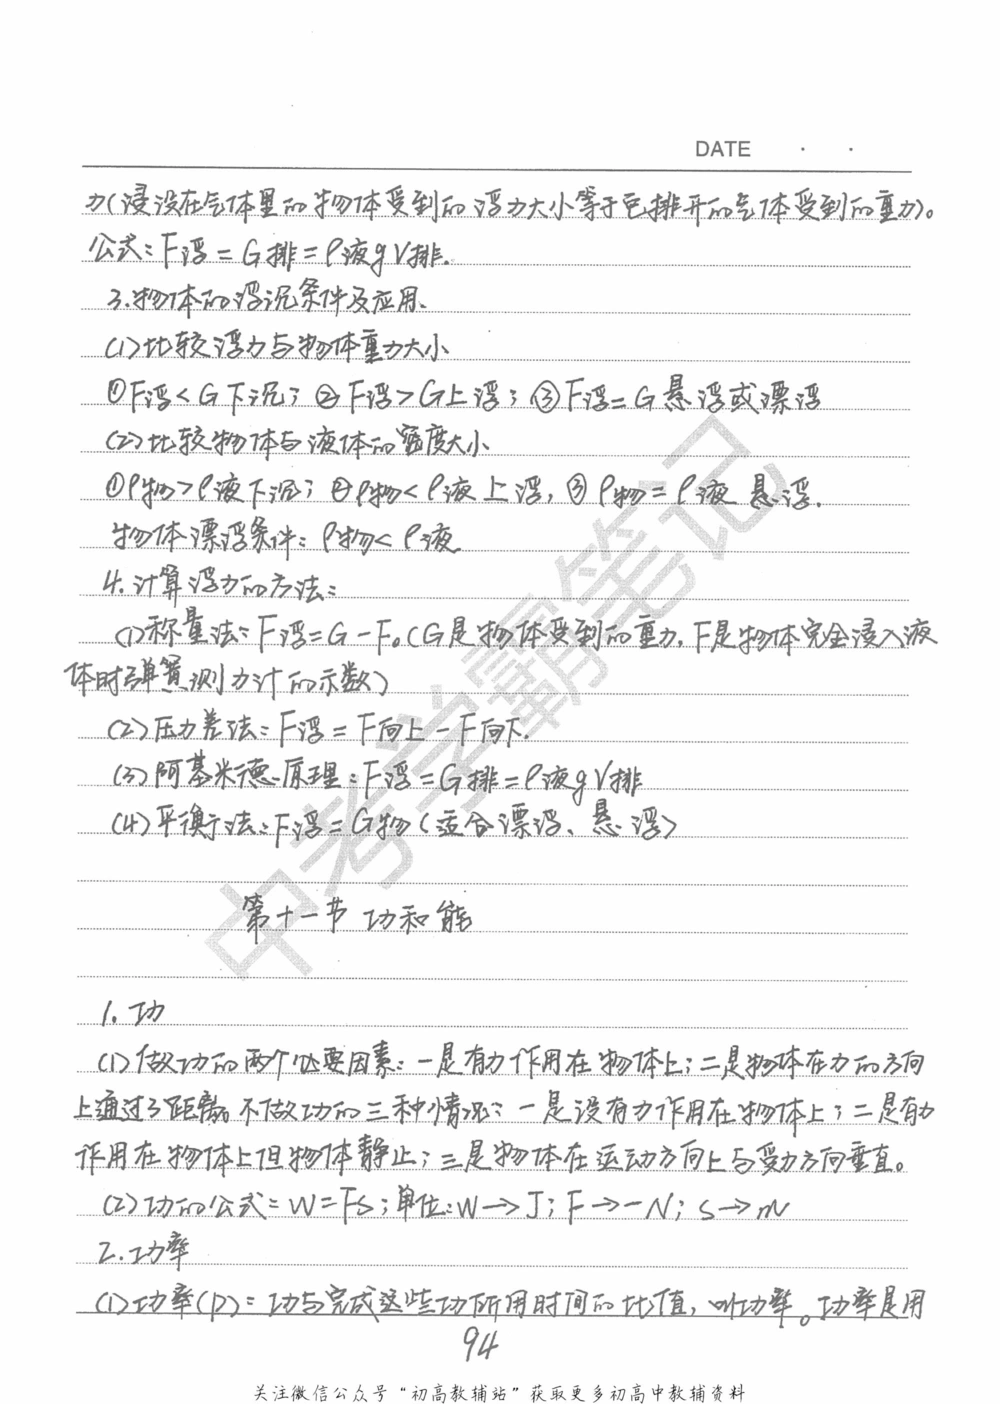 DATE · ·
力(浸没在气体里的物体受到的浮力大小等于它排开的气体受到的重力)。
公式:F浮=G排=ρ液gV排.
3.物体的浮沉条件及应用.
(1)比较浮力与物体重力大小
①F浮<G下沉;②F浮>G上浮;③F浮=G悬浮或漂浮
(2)比较物体与液体的密度大小
①ρ物>ρ液下沉;②ρ物<ρ液上浮,③ρ物=ρ液 悬浮.
物体漂浮条件:ρ物<ρ液
4.计算浮力的方法:
(1)称量法:F浮=G-F。(G是物体受到的重力,F是物体完全浸入液
体时弹簧测力计的示数)
(2)压力差法:F浮=F向上-F向下.
(3)阿基米德原理:F浮=G排=ρ液gV排
(4)平衡法:F浮=G物(适合漂浮、悬浮)
第十一节 功和能
1.功
(1)做功的两个必要因素:一是有力作用在物体上;二是物体在力的方向
上通过了距离。不做功的三种情况:一是没有力作用在物体上;二是有力
作用在物体上但物体静止;三是物体在运动方向上与受力方向垂直。
(2)功的公式:W=Fs;单位:W→J;F→N;s→m
2.功率
(1)功率(P):功与完成这些功所用时间的比值,叫功率。功率是用
94
关注微信公众号“初高教辅站”获取更多初高中教辅资料
中考学霸笔记